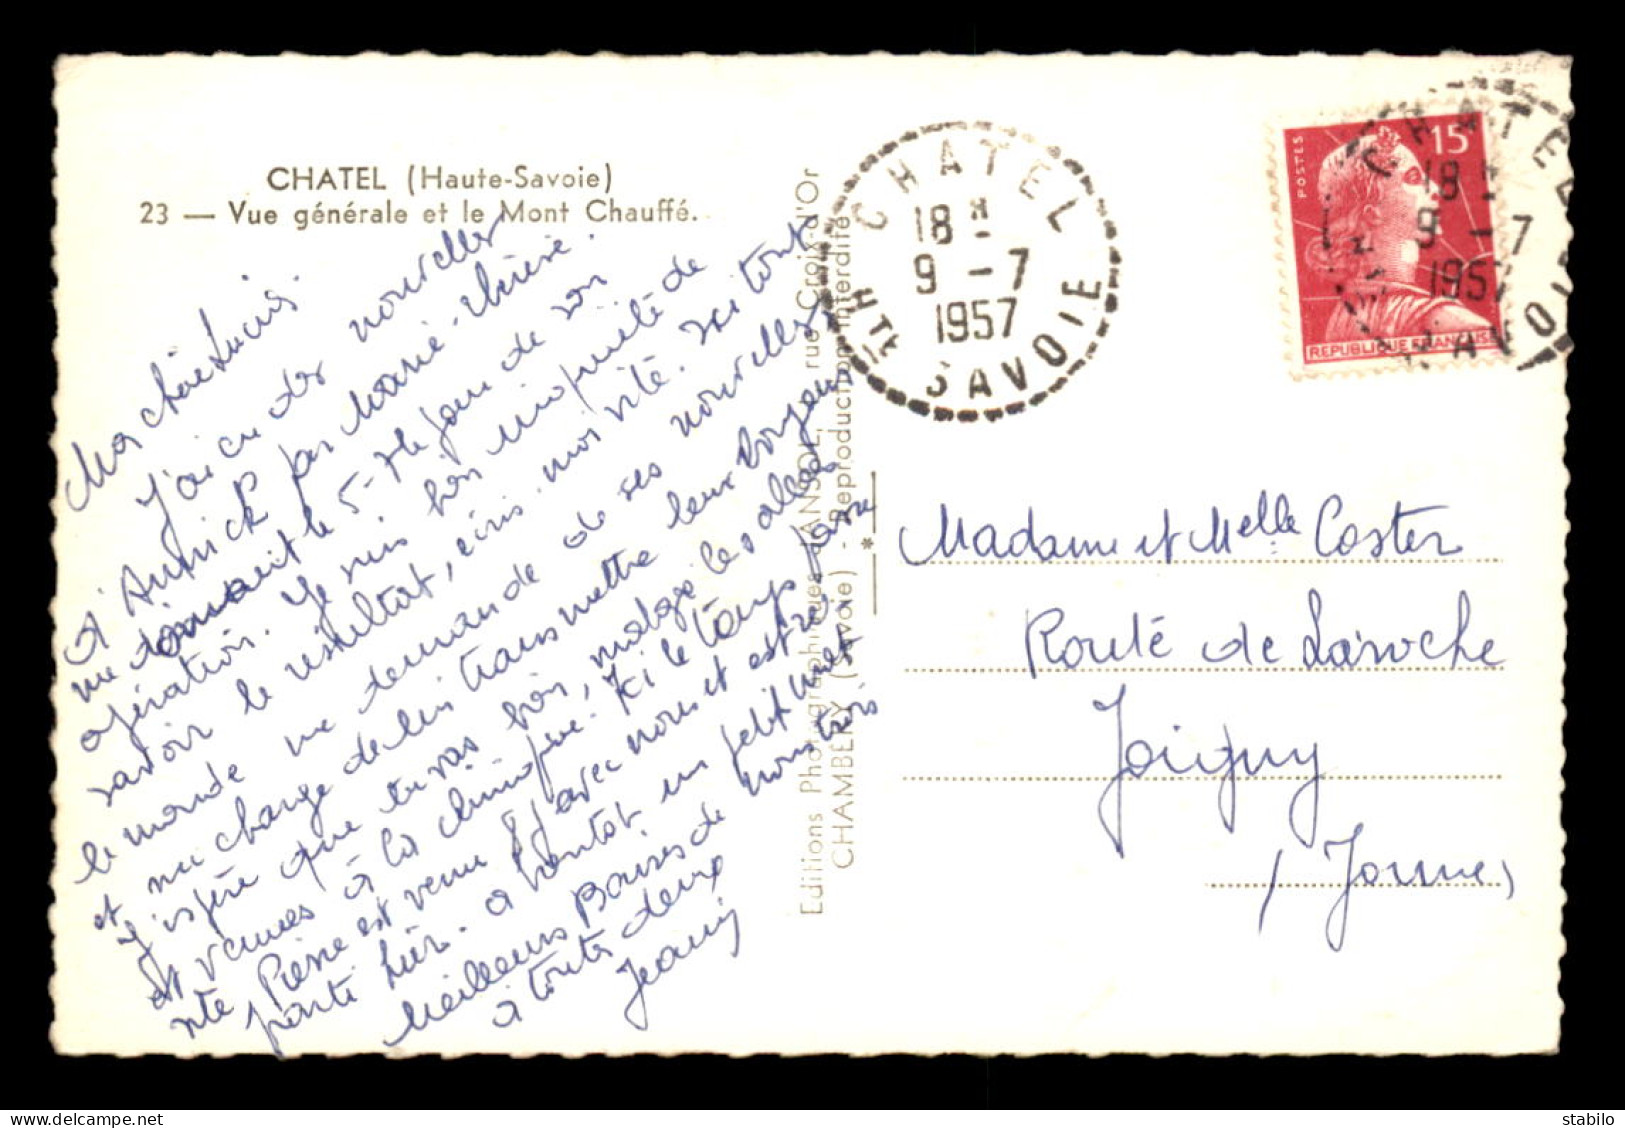 CHATEL (Haute-Savoie)
23 — Vue générale et le Mont Chauffé.
Ma chère
J'ai eu des nouvelles
d'Annick par Marie-Thérèse.
me le 5-7 le jour de son
opération. Je suis bien inquiète de
savoir le résultat, écris moi vite. Ici tout
le monde me demande de ses nouvelles
et me charge de lui transmettre leurs
J'espère que tu vas bien, malgré les allées
et venues à la clinique. Ici le temps passe
vite Pierre est venu avec nous et est
parti hier. A bientôt un petit mot
Meilleurs Baisers de nous trois
à toutes deux
Editions Photographiques JANSOL, rue Croix-d'Or
CHAMBERY (Savoie) - Reproduction interdite
CHATEL
18 H
9 - 7
1957
HTE SAVOIE
POSTES
15
REPUBLIQUE FRANÇAISE
CHATEL
18
9 - 7
1957
SAVOIE
Madame et Melle Coster
Route de Laroche
Joigny
(Yonne)
stabilo